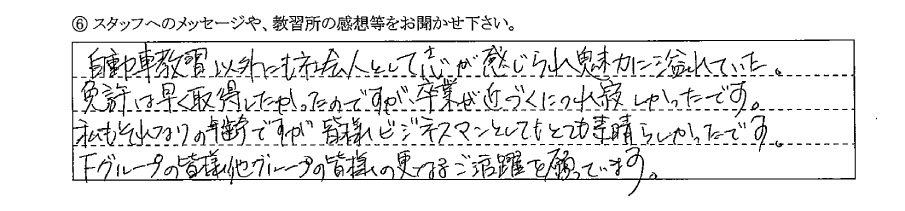 ⑥ スタッフへのメッセージや、教習所の感想等をお聞かせ下さい。
自動車教習以外にも社会人として志が感じられ魅力に溢れていた。
免許は早く取得したかったのですが、卒業が近づくにつれ寂しかったです。
私もそれなりの年齢ですが皆様ビジネスマンとしてもとても素晴らしかったです。
Fグループの皆様他グループの皆様の更なるご活躍を願っています。